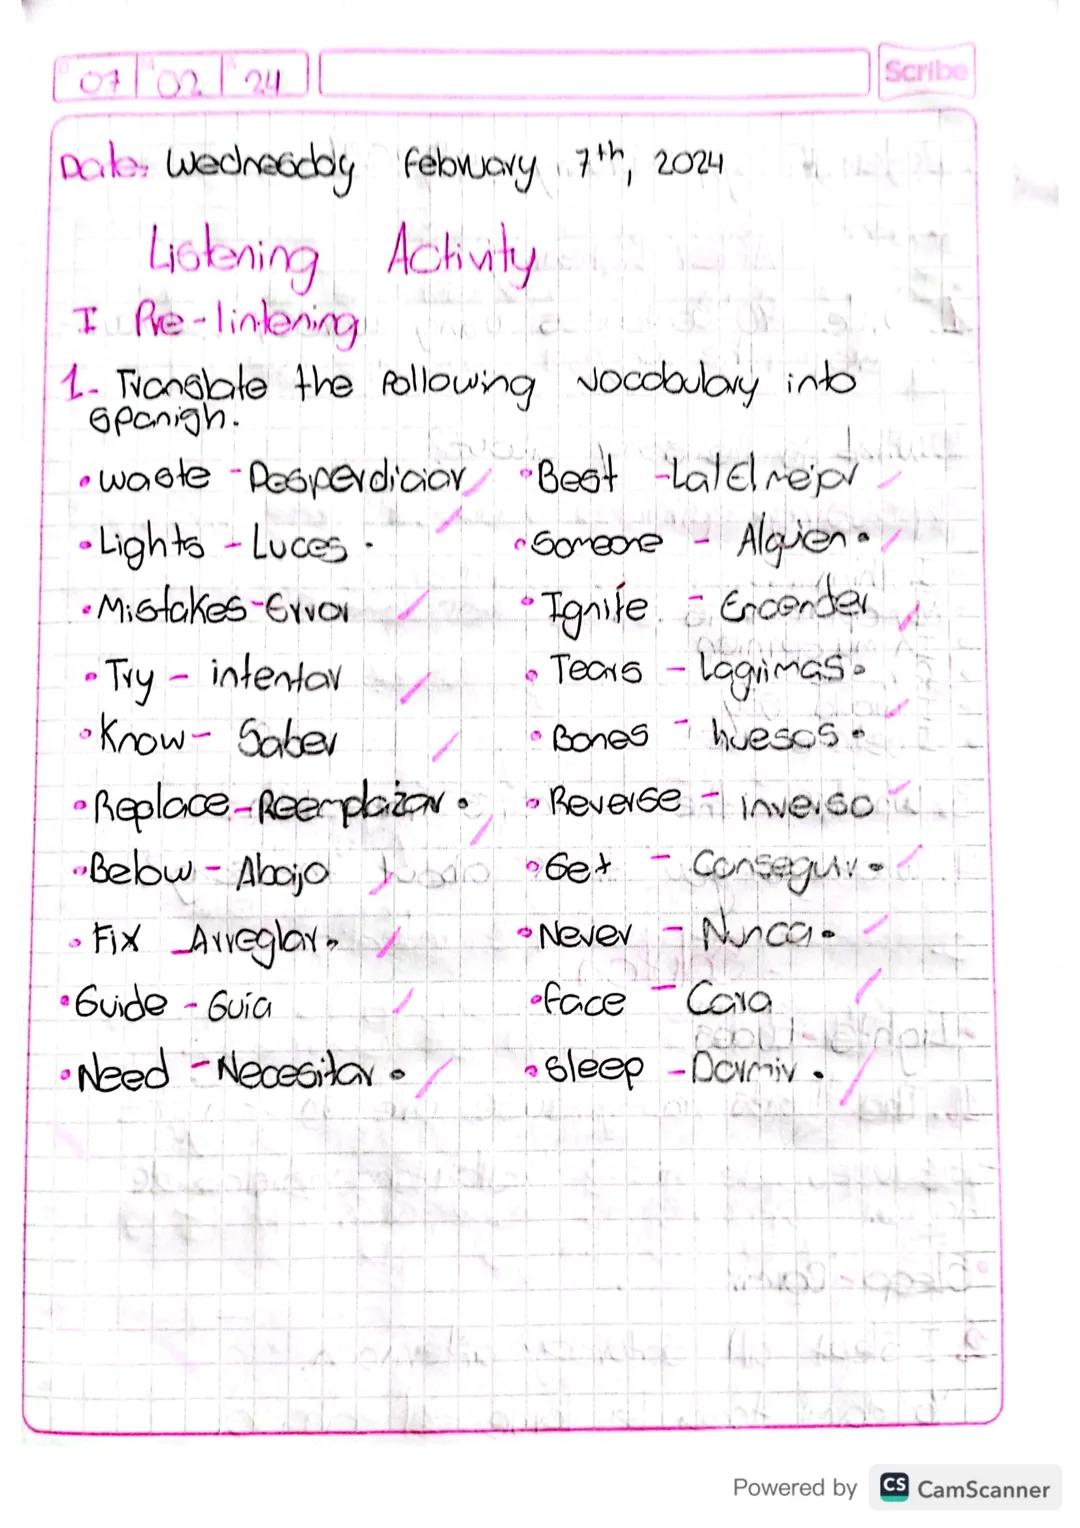 07 02 24 Scribe
Date: Wednesday February 7th, 2024
Listening Activity
I Pre-lintening
1- Translate the following vocabulary into
spanish.
• waste - Desperdiciar
• Lights - Luces.
• Mistakes - Error
• Try - intentar
• Know - Saber
• Replace - Reemplazar.
• Below - Abajo
• Fix - Arreglar.
• Guide - Guia
• Need - Necesitar.
• Best - La/El mejor
• Someone - Alguien.
• Ignite - Encender
• Tears - Lagrimas.
• Bones - huesos.
• Reverse - inverso
• Get - Conseguir.
• Never - Nunca.
• face - Cara
• Sleep - Dormir.
Powered by CS CamScanner